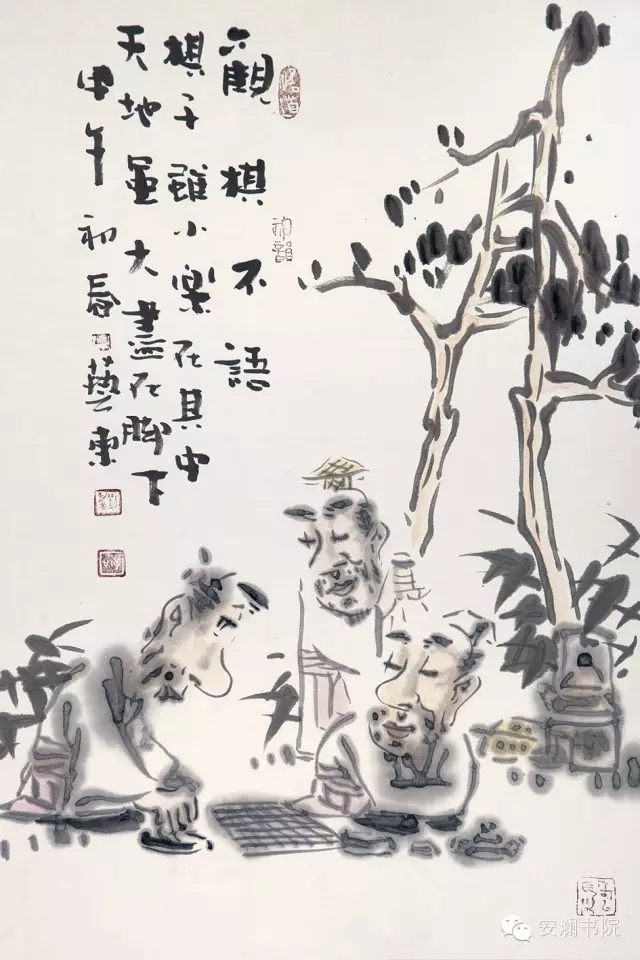 觀棋不語
棋子雖小樂在其中
天地虽大盡在脚下
甲午初春藝東
安澜书院